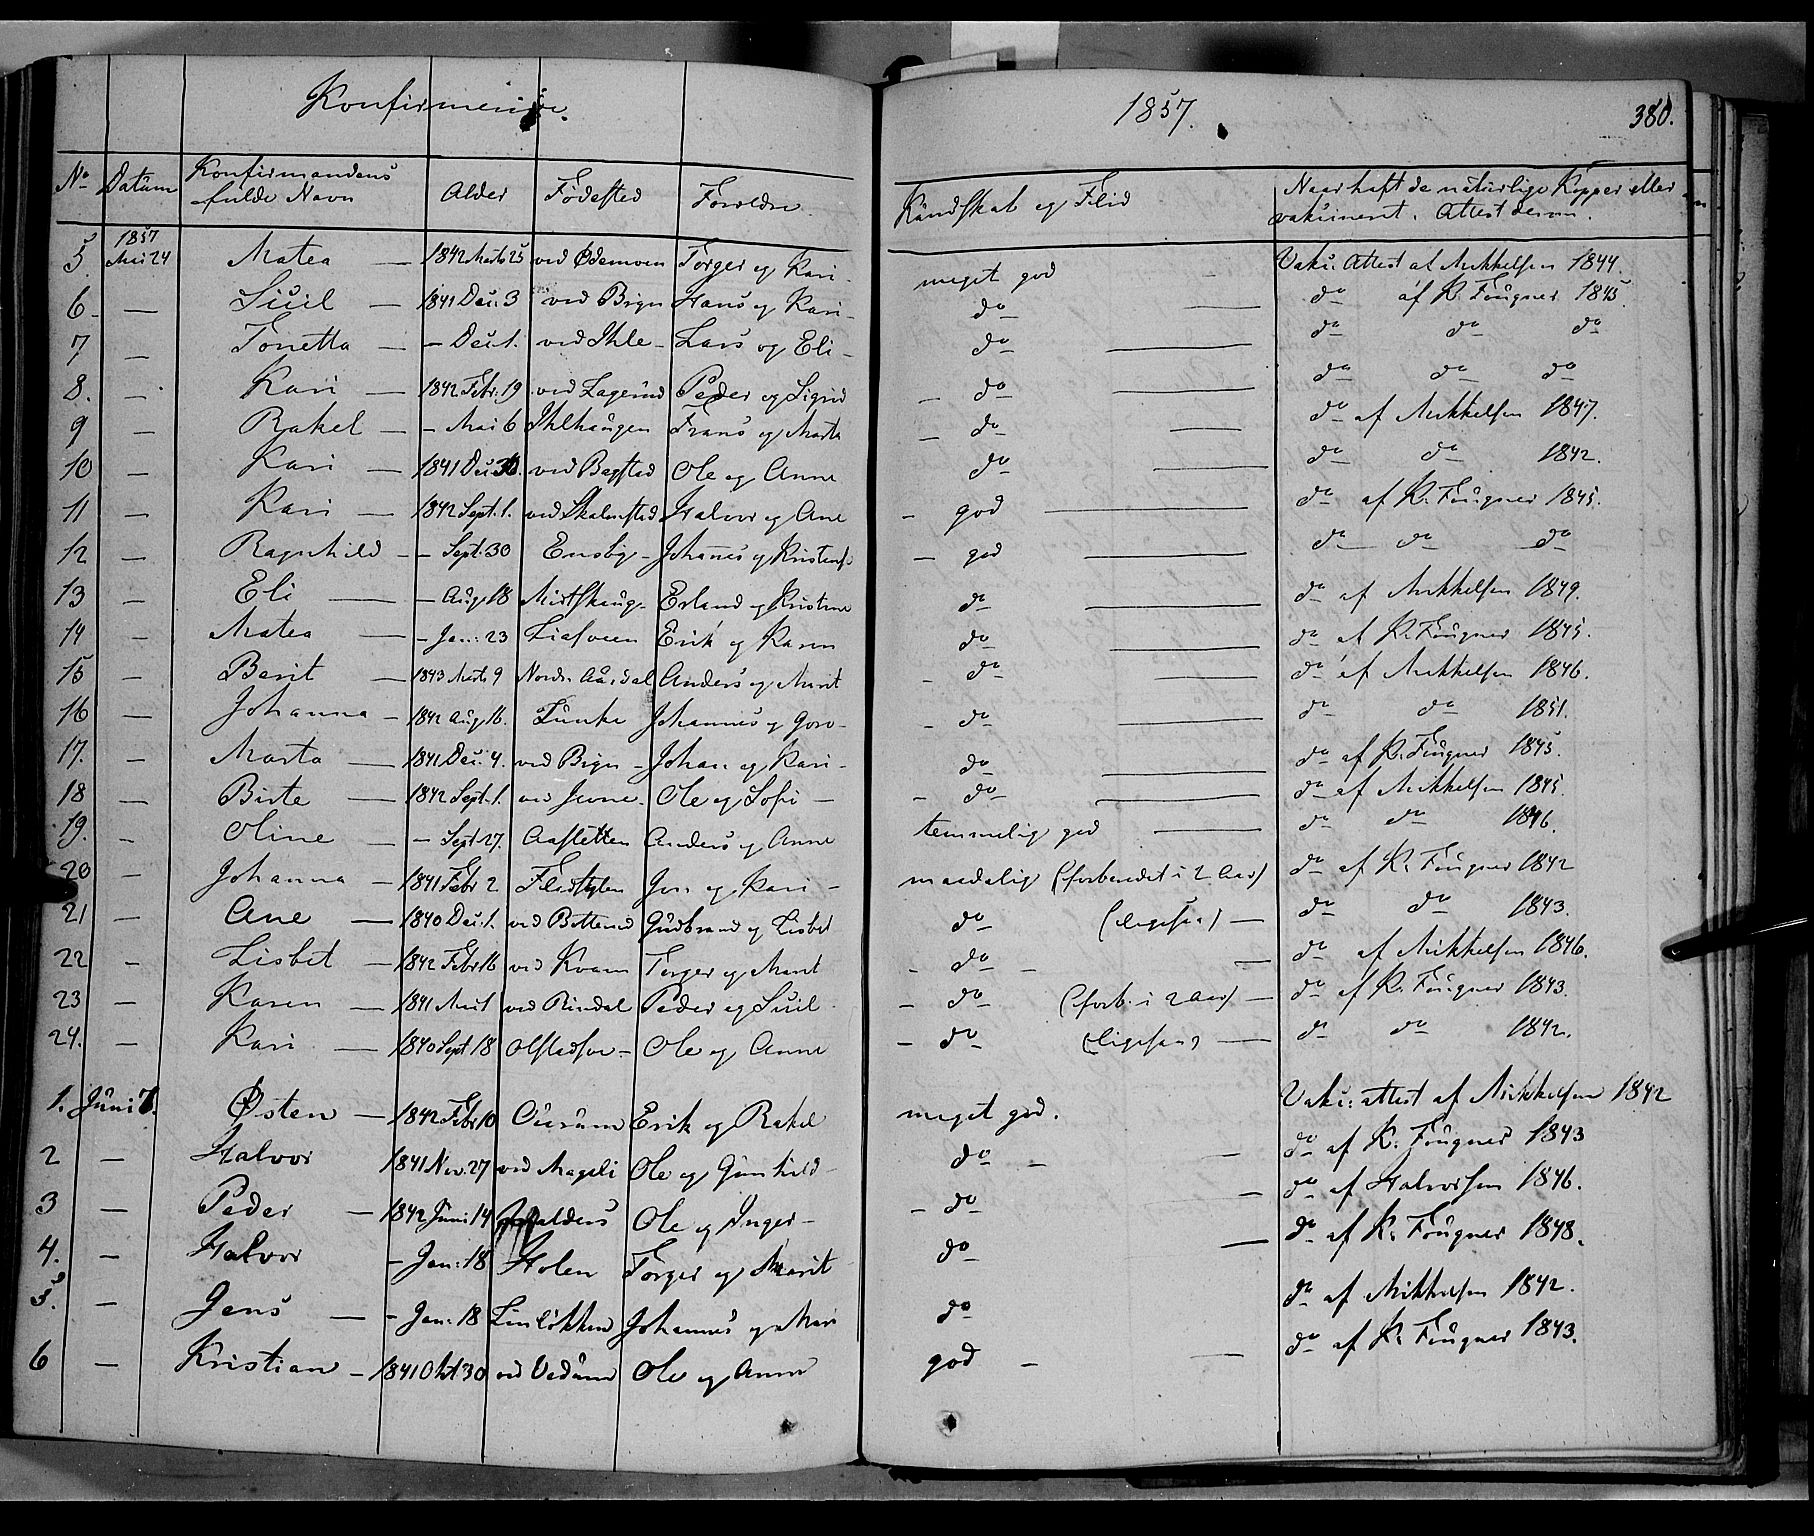 Konfirmerede.
1857.
380.
No Datum Konfirmandens fulde Navn Alder Födested Foreldre. Kundskab og Flid Naar haft de naturlige Kopper eller vaksineret. Attest derom.
1857
5. Mai 24 Matea — 1842 Marts 25 ved Ødemoen Torger og Kari - meget god — Vaks: Attest af Mikkelsen 1844.
6. — Siul — 1841 Des: 3 ved Bign Hans og Kari - do — do af K. Fougner 1845.
7 — Tonetta — - Des: 1. ved Ihle - Lars og Eli - do — do do do
8. — Kari — 1842 Febr. 19 ved Lagerud Peder og Sigrid - do — do do do
9 — Rakel — - Mai 6 Ihlhaugen Frans og Marta - do — do af Mikkelsen 1847.
10 — Kari — 1841 Des: 30. ved Bagstad Ole og Anne do — do do 1842.
11 — Kari — 1842 Sept. 1. ved Skalmstad Halvor og Ane - god — do af K. Fougner 1845.
12 — Ragnhild - - Sept: 30 Ensby - Johannes og - god — do do do
13 — Eli — - Aug. 18 Erland og Kristine do — do af Mikkelsen 1849.
14 — Matea — - Jan: 23 Erik og Karen do — do af K. Fougner 1845.
15 — Berit — 1843 Marts 9 Nordr. Aurdal Anders og Marit - do — do af Mikkelsen 1846.
16 — Johanna - 1842 Aug. 16. Lunke Johannes og Goro - - do — do do 1851.
17. — Marta — 1841 Des: 4. ved Bign - Johan og Kari - do — do af K. Fougner 1845.
18 — Birte — 1842 Sept. 1. ved Jevne - Ole og Sofi - - do — do af Mikkelsen 1845.
19. — Oline — - Sept 27. Aasletten Anders og Anne temmelig god — do do 1846.
20 — Johanna - 1841 Febr 2 Jon og Kari - maadelig (forberedet i 2 Aar) do af K. Fougner 1842
21 — Ane — 1840 Des: 1. ved Botterud Gudbrand og Lisbet do (ligesaa) — do do 1843.
22 — Lisbet - 1842 Febr 16 ved Kvam Torger og Marit - do - — do af Mikkelsen 1846.
23 — Karen — 1841 Mai 1 ved Rindal Peder og Siul - do (forb. i 2 Aar) — do af K. Fougner 1843.
24. — Kari — 1840 Sept 18 Ole og Anne - do (ligesaa) — do do 1842.
1. Juni 7. Østen — 1842 Febr 10 Aurum Erik og Rakel meget god. Vaks: attest af Mikkelsen 1842
2 — Halvor 1841 Nov. 27 ved Mageli Ole og Gunhild - do - — do af K. Fougner 1843
3 — Peder — 1842 Juni 14 Ole og Inger - - do — do af Halvorsen 1846.
4. — Halvor - Jan: 18 Holen Torger og Marit do — do af K. Fougner 1848.
5. — Jens — - Jan: 18 Linløkken Johannes og Mari do do af Mikkelsen 1842.
6 — Kristian - 1841 Okt 30 ved Vedum Ole og Anne god - — do af K. Fougner 1843.